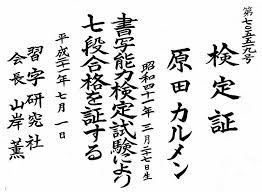 第七〇五五二九号
検定証
原田カルメン
昭和四十一年三月二七日生
書写能力検定試験により
七段合格を証する
平成二十一年七月一日
習字研究社
会長山岸薫